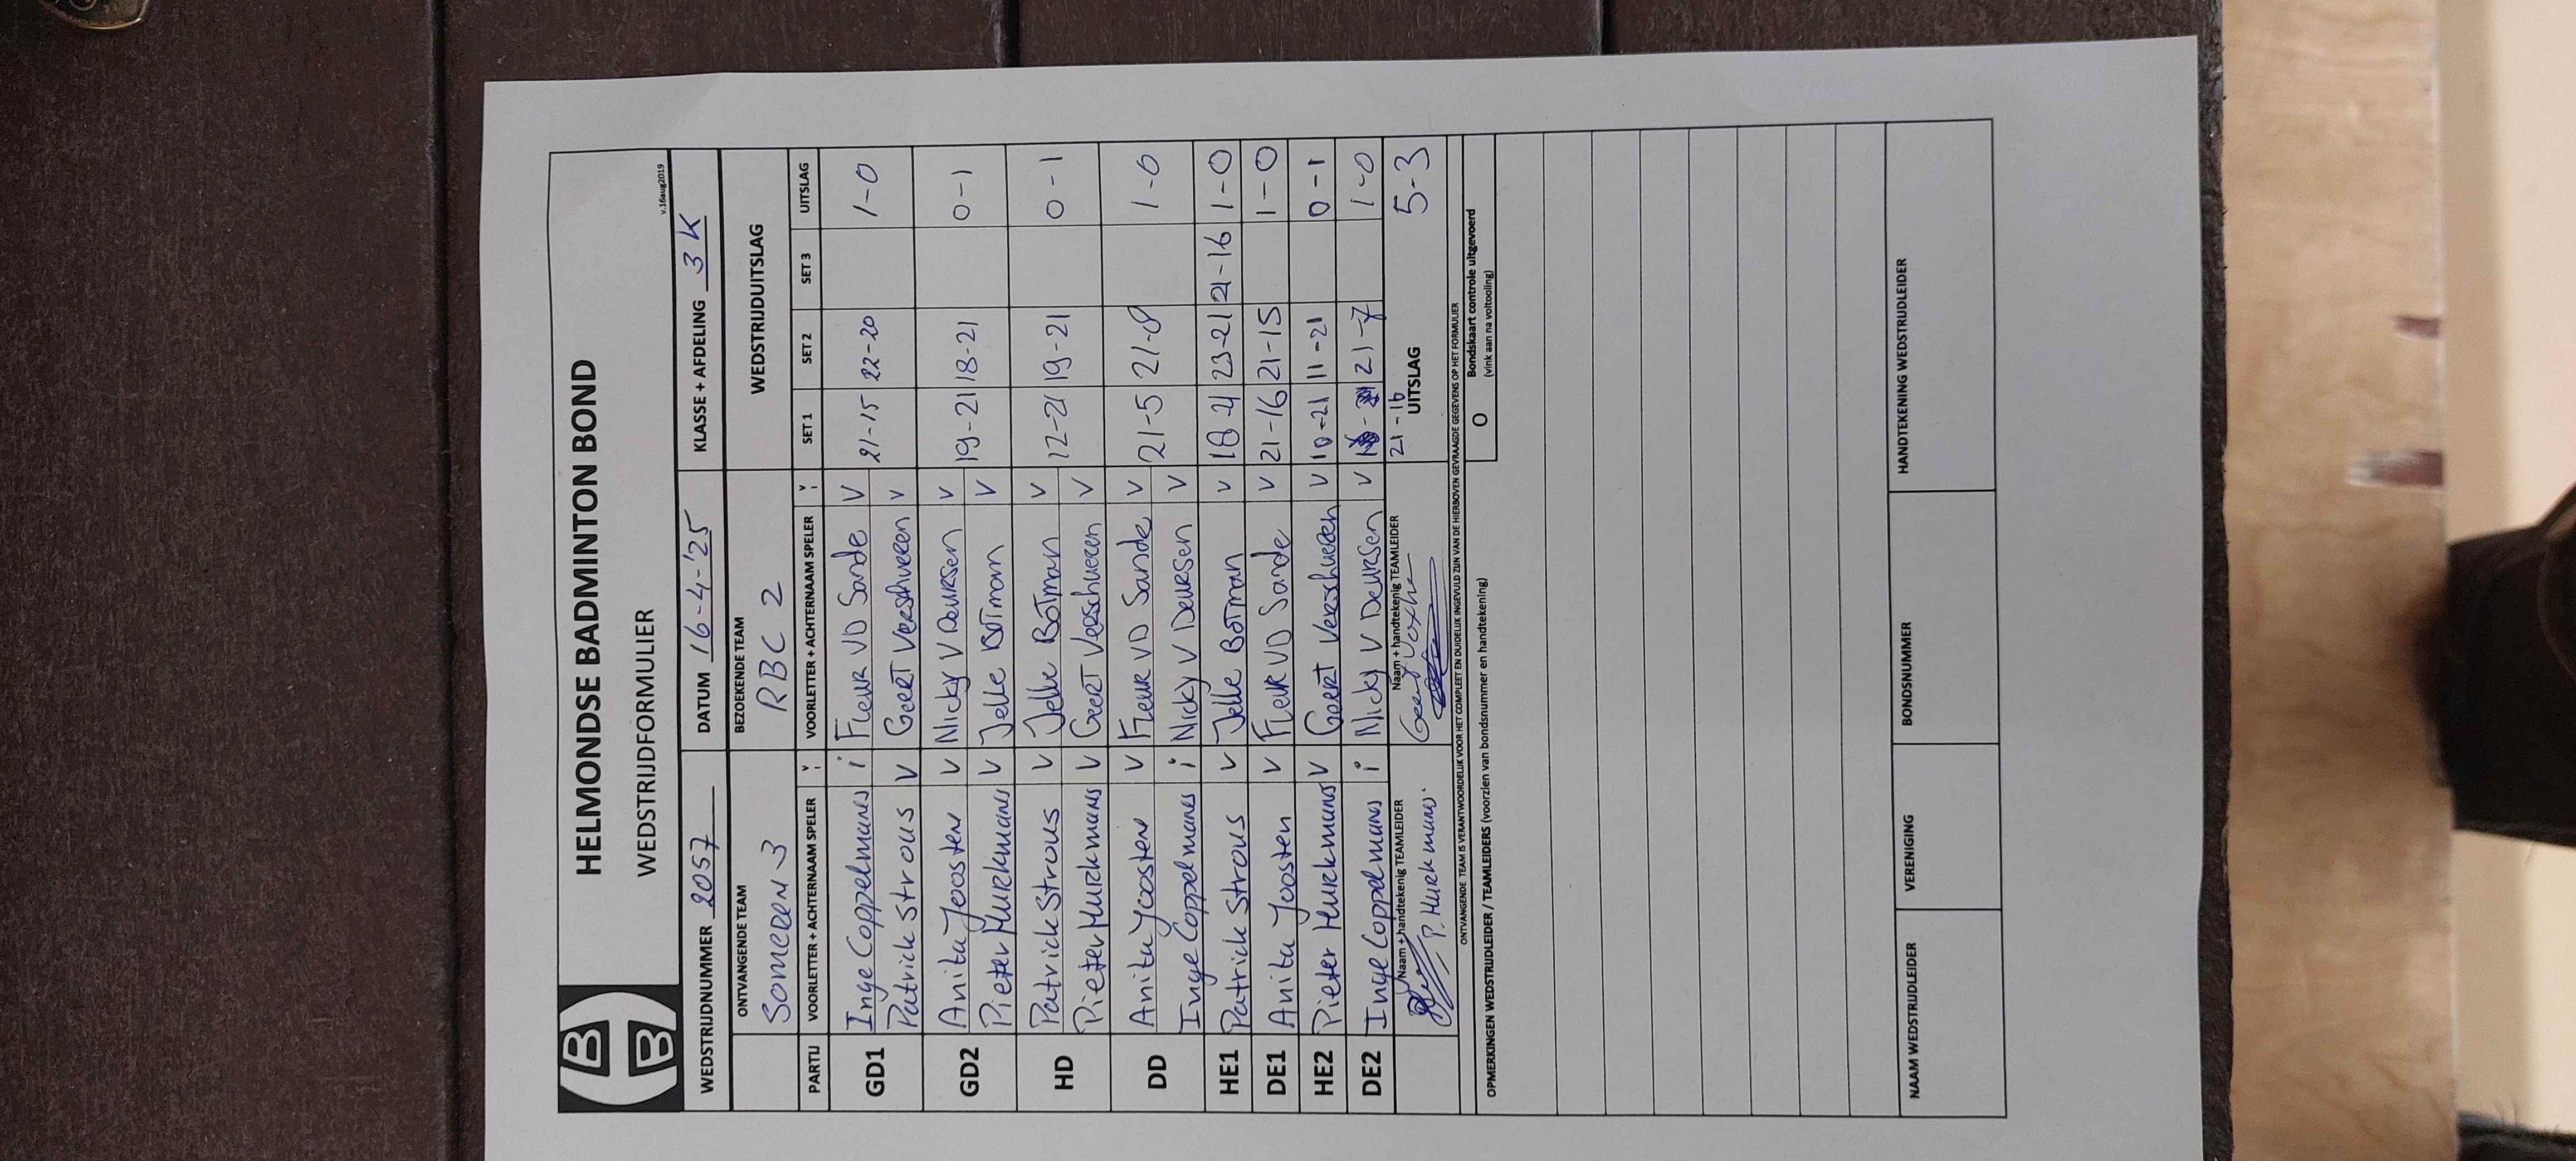 HELMONDSE BADMINTON BOND
WEDSTRIJDFORMULIER
v.16aug2019
WEDSTRIJDNUMMER 2057 DATUM 16-4-'25 KLASSE + AFDELING 3 K
ONTVANGENDE TEAM BEZOEKENDE TEAM WEDSTRIJDUITSLAG
Someren 3 RBC 2
PARTIJ VOORLETTER + ACHTERNAAM SPELER V I VOORLETTER + ACHTERNAAM SPELER V I SET 1 SET 2 SET 3 UITSLAG
GD1 Inge Coppelmans i Fleur VD Sande V 21-15 22-20 1-0
Patrick Strous V Geert Verschueren V
GD2 Anita Joosten V Nicky V Deursen V 19-21 18-21 0-1
Pieter Hurkmans V Jelle Botman V
HD Patrick Strous V Jelle Botman V 12-21 19-21 0-1
Pieter Hurkmans V Geert Verschueren V
DD Anita Joosten V Fleur VD Sande V 21-5 21-8 1-0
Inge Coppelmans i Nicky V Deursen V
HE1 Patrick Strous V Jelle Botman V 18-21 23-21 21-16 1-0
DE1 Anita Joosten V Fleur VD Sande V 21-16 21-15 1-0
HE2 Pieter Hurkmans V Geert Verschueren V 10-21 11-21 0-1
DE2 Inge Coppelmans i Nicky V Deursen V 21-7 1-0
21-16
Naam + handtekenig TEAMLEIDER Naam + handtekenig TEAMLEIDER UITSLAG 5-3
P. Hurkmans.
ONTVANGENDE TEAM IS VERANTWOORDELIJK VOOR HET COMPLEET EN DUIDELIJK INGEVULD ZIJN VAN DE HIERBOVEN GEVRAAGDE GEGEVENS OP HET FORMULIER
OPMERKINGEN WEDSTRIJDLEIDER / TEAMLEIDERS (voorzien van bondsnummer en handtekening) O Bondskaart controle uitgevoerd
(vink aan na voltooling)
NAAM WEDSTRIJDLEIDER VERENIGING BONDSNUMMER HANDTEKENING WEDSTRIJDLEIDER